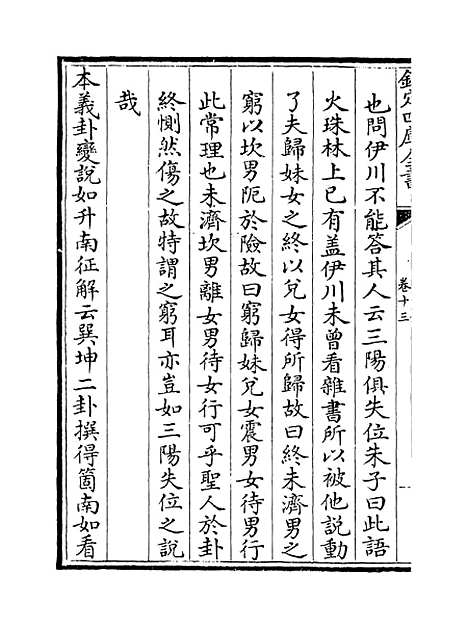 欽定四庫全書
卷十三
也問伊川不能答其人云三陽俱失位朱子曰此語
火珠林上已有盖伊川未曾看雜書所以被他説動
了夫歸妹女之終以兌女得所歸故曰終未濟男之
窮以坎男阨於險故曰窮歸妹兌女震男女待男行
此常理也未濟坎男離女男待女行可乎聖人於卦
終惻然傷之故特謂之窮耳亦豈如三陽失位之說
哉
本義卦變說如升南征解云巽坤二卦撰得箇南如看